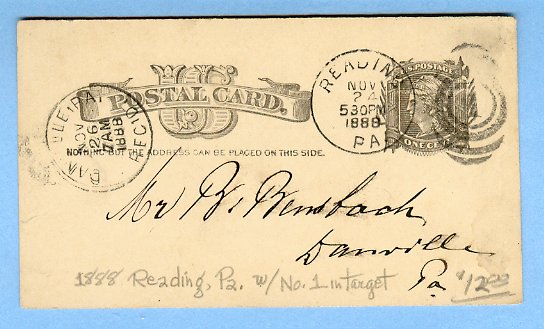 US
POSTAL CARD.
NOTHING BUT THE ADDRESS CAN BE PLACED ON THIS SIDE.
DANVILLE, PA.
NOV
26
7AM
1888
REC'D
READING
NOV
24
530PM
1888
PA
U.S. POSTAGE
ONE CENT
Mr B. Bembach
Danville
Pa
1888 Reading, Pa. w/ No. 1 in target
$12.00